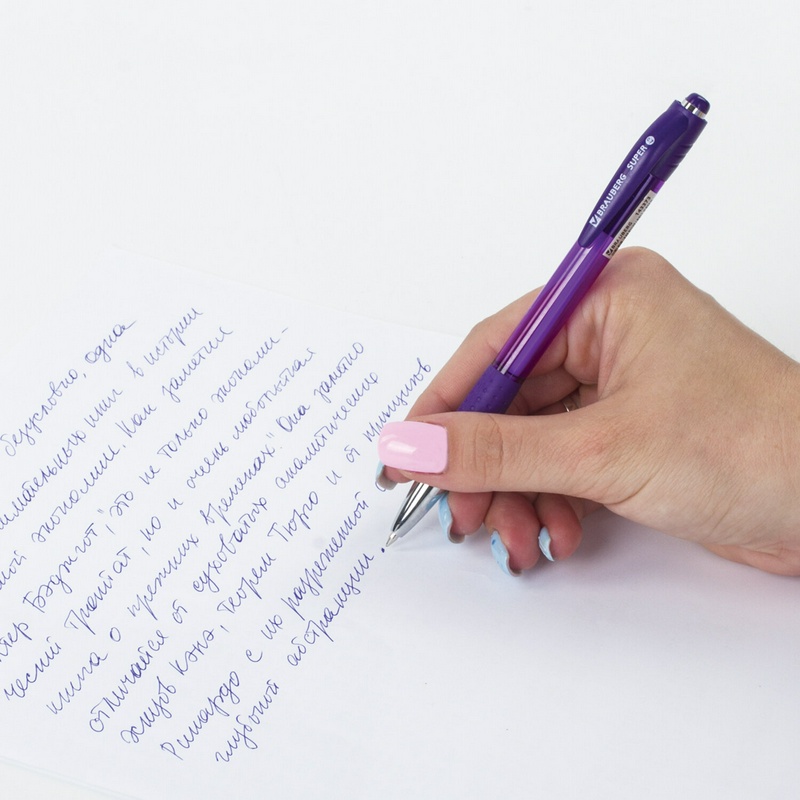 безусловно, одна
имательных книг в истории
ой экономии. Как заметил
тер Бэджгот, "это не только экономи-
ческий трактат, но и очень любопытная
книга о прежних временах". Она заметно
отличается от суховатых аналитических
эскизов Кэнэ, теорем Тюрго и от
Рикардо с их разреженной
глубокой абстракции.
BRAUBERG SUPER
BRAUBERG